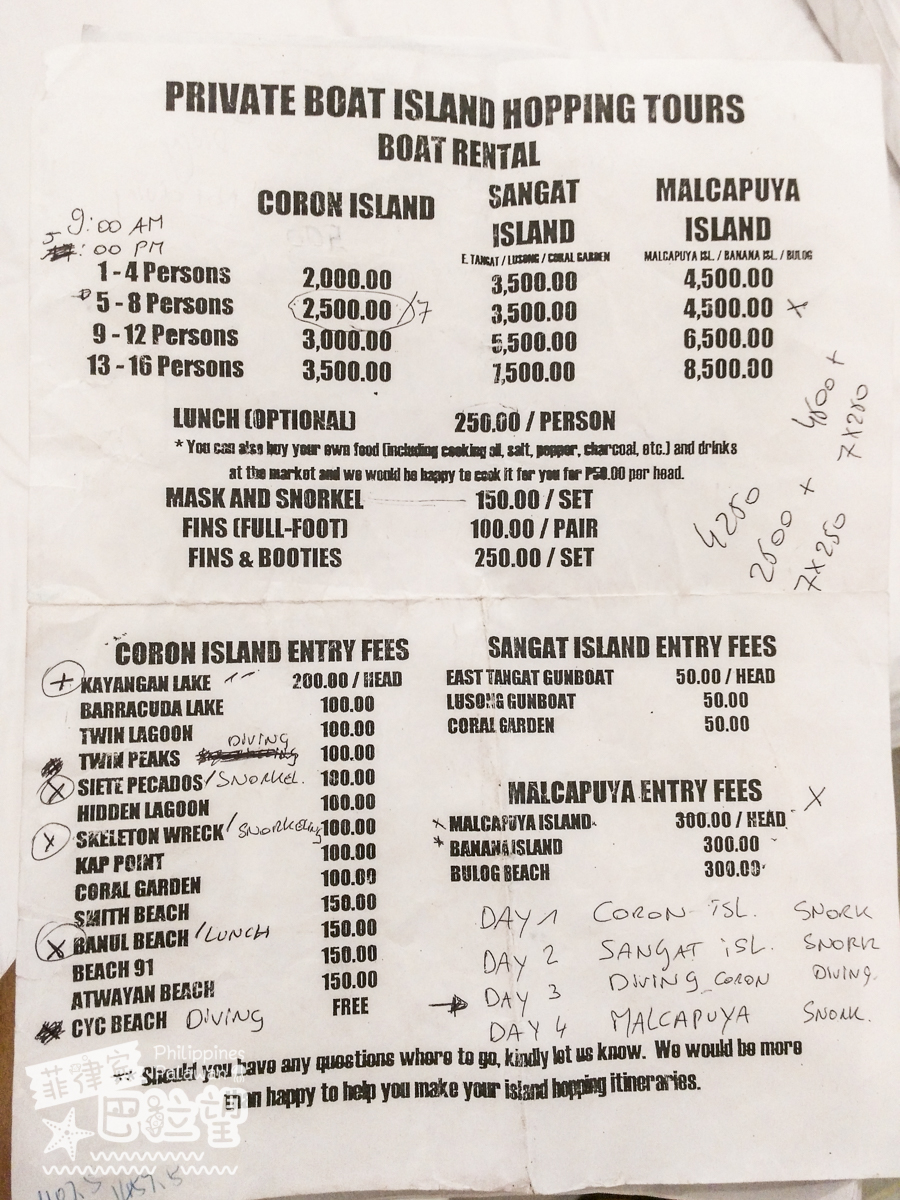 PRIVATE BOAT ISLAND HOPPING TOURS
BOAT RENTAL
CORON ISLAND
SANGAT ISLAND
E. TANGAT / LUSONG / CORAL GARDEN
MALCAPUYA ISLAND
MALCAPUYA ISL. / BANANA ISL. / BULOG
9:00 AM
5 :00 PM
1 - 4 Persons 2,000.00 3,500.00 4,500.00
5 - 8 Persons 2,500.00 /7 3,500.00 4,500.00 x
9 - 12 Persons 3,000.00 5,500.00 6,500.00
13 - 16 Persons 3,500.00 7,500.00 8,500.00
4500 +
7x250
LUNCH (OPTIONAL) 250.00 / PERSON
* You can also buy your own food (including cooking oil, salt, pepper, charcoal, etc.) and drinks
at the market and we would be happy to cook it for you for P50.00 per head.
MASK AND SNORKEL 150.00 / SET
FINS (FULL-FOOT) 100.00 / PAIR
FINS & BOOTIES 250.00 / SET
4250
2500 +
7x250
CORON ISLAND ENTRY FEES
+ KAYANGAN LAKE 200.00 / HEAD
BARRACUDA LAKE 100.00
TWIN LAGOON 100.00
TWIN PEAKS DIVING 100.00
x SIETE PECADOS / SNORKEL. 100.00
HIDDEN LAGOON 100.00
x SKELETON WRECK / SNORKELING 100.00
KAP POINT 100.00
CORAL GARDEN 100.00
SMITH BEACH 150.00
x BANUL BEACH / LUNCH 150.00
BEACH 91 150.00
ATWAYAN BEACH 150.00
CYC BEACH DIVING FREE
SANGAT ISLAND ENTRY FEES
EAST TANGAT GUNBOAT 50.00 / HEAD
LUSONG GUNBOAT 50.00
CORAL GARDEN 50.00
MALCAPUYA ENTRY FEES x
x MALCAPUYA ISLAND 300.00 / HEAD
* BANANA ISLAND 300.00
BULOG BEACH 300.00
DAY 1 CORON ISL. SNORK
DAY 2 SANGAT ISL. SNORK
→ DAY 3 DIVING CORON DIVING.
DAY 4 MALCAPUYA SNORK.
** Should you have any questions where to go, kindly let us know. We would be more
than happy to help you make your island hopping itineraries.
菲律客
Philippines
Palawan
巴拉望